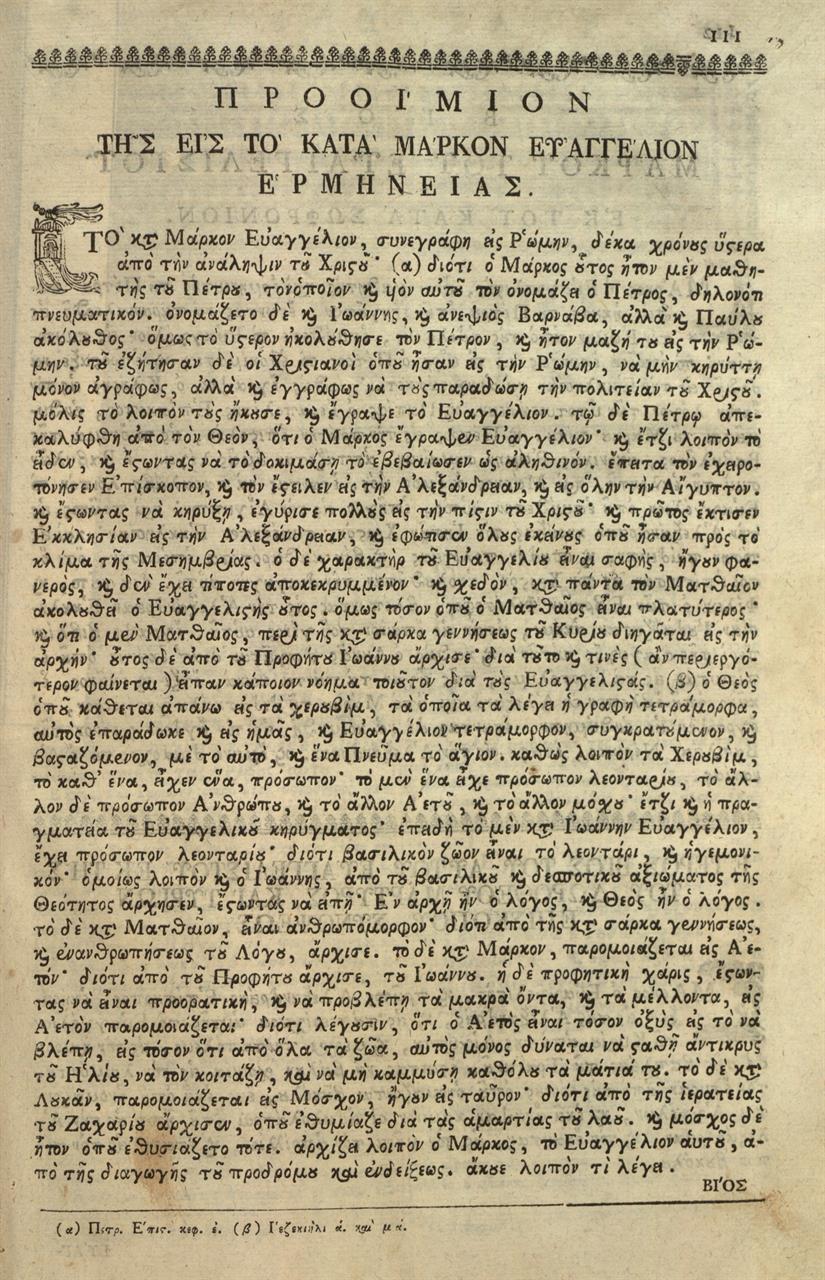 111
ΠΡΟΟΙ΄ΜΙΟΝ
ΤΗ͂Σ ΕΙ᾿Σ ΤΟ` ΚΑΤΑ` ΜΑ΄ΡΚΟΝ ΕΥ᾿ΑΓΓΕ΄ΛΙΟΝ
Ε῾ΡΜΗΝΕΙΑΣ.
ΤΟ` κτ̀ Μάρκον Εὐαγγέλιον, συνεγράφη εἰς Ρ῾ώμην, δέκα χρόνους ὕϛερα
ἀπὸ τὴν ἀνάληψιν τοῦ Χριϛοῦ· (α) διότι ὁ Μάρκος οὗτος ἦτον μὲν μαθη-
τὴς τοῦ Πέτρου, τὸν ὁποῖον ϗ υἱὸν αὑτοῦ τὸν ὀνομάζει ὁ Πέτρος, δηλονότι
πνευματικόν. ὀνομάζετο δὲ ϗ Ι᾿ωάννης, ϗ ἀνεψιὸς Βαρνάβα, ἀλλὰ ϗ Παύλου
ἀκόλουθος· ὅμως τὸ ὕϛερον ἠκολούθησε τὸν Πέτρον, ϗ ἦτον μαζή του εἰς τὴν Ρ῾ώ-
μην. τοῦ ἐζήτησαν δὲ οἱ Χριϛιανοὶ ὁποῦ ἦσαν εἰς τὴν Ρ῾ώμην, νὰ μὴν κηρύττῃ
μόνον ἀγράφως, ἀλλὰ ϗ ἐγγράφως νὰ τοὺς παραδώσῃ τὴν πολιτείαν τοῦ Χριϛοῦ.
μόλις τὸ λοιπὸν τοὺς ἤκουσε, ϗ ἔγραψε τὸ Εὐαγγέλιον. τῷ δὲ Πέτρῳ ἀπε-
καλύφθη ἀπὸ τὸν Θεὸν, ὅτι ὁ Μάρκος ἔγραψεν Εὐαγγέλιον· ϗ ἔτζι λοιπὸν τὸ
εἶδεν, ϗ ἔϛωντας νὰ τὸ δοκιμάσῃ τὸ ἐβεβαίωσεν ὡς ἀληθινόν. ἔπειτα τὸν ἐχειρο-
τόνησεν Ε᾿πίσκοπον, ϗ τὸν ἔϛειλεν εἰς τὴν Α᾿λεξάνδρειαν, ϗ εἰς ὅλην τὴν Αἴγυπτον.
ϗ ἔϛωντας νὰ κηρύξῃ, ἐγύρισε πολλοὺς εἰς τὴν πίϛιν τοῦ Χριϛοῦ· ϗ πρῶτος ἔκτισεν
Ε᾿κκλησίαν εἰς τὴν Α᾿λεξάνδρειαν, ϗ ἐφώτισεν ὅλους ἐκείνους ὁποῦ ἦσαν πρὸς τὸ
κλίμα τῆς Μεσημβρίας. ὁ δὲ χαρακτὴρ τοῦ Εὐαγγελίου εἶναι σαφὴς, ἤγουν φα-
νερὸς, ϗ δὲν ἔχει τίποτες ἀποκεκρυμμένον· ϗ σχεδὸν, κτ̀ πάντα τὸν Ματθαῖον
ἀκολουθεῖ ὁ Εὐαγγελιϛὴς οὗτος. ὅμως τόσον ὁποῦ ὁ Ματθαῖος εἶναι πλατύτερος·
ϗ ὅτι ὁ μὲν Ματθαῖος, περὶ τῆς κτ̀ σάρκα γεννήσεως τοῦ Κυρίου διηγᾶται εἰς τὴν
ἀρχήν· οὗτος δὲ ἀπὸ τοῦ Προφήτου Ι᾿ωάννου ἄρχισε· διὰ τοῦτο ϗ τινὲς (ἂν περιεργό-
τερον φαίνεται) εἶπαν κάποιον νόημα τοιοῦτον διὰ τοὺς Εὐαγγελιϛάς. (β) ὁ Θεὸς
ὁποῦ κάθεται ἀπάνω εἰς τὰ χερουβὶμ, τὰ ὁποῖα τὰ λέγει ἡ γραφὴ τετράμορφα,
αὐτὸς ἐπαράδωκε ϗ εἰς ἡμᾶς, ϗ Εὐαγγέλιον τετράμορφον, συγκρατούμενον, ϗ
βαϛαζόμενον, μὲ τὸ αὐτὸ, ϗ ἕνα Πνεῦμα τὸ ἅγιον. καθὼς λοιπὸν τὰ Χερουβὶμ,
τὸ καθ᾿ ἕνα, εἶχεν ἕνα, πρόσωπον· τὸ μὲν ἕνα εἶχε πρόσωπον λεονταρίου, τὸ ἄλ-
λον δὲ πρόσωπον Α᾿νθρώπου, ϗ τὸ ἄλλον Α᾿ετοῦ, ϗ τὸ ἄλλον μόσχου· ἔτζι ϗ ἡ πρα-
γματεία τοῦ Εὐαγγελικοῦ κηρύγματος· ἐπειδὴ τὸ μὲν κτ̀ Ι᾿ωάννην Εὐαγγέλιον,
ἔχει πρόσωπον λεονταρίου· διότι βασιλικὸν ζῶον εἶναι τὸ λεοντάρι, ϗ ἡγεμονι-
κόν· ὁμοίως λοιπὸν ϗ ὁ Ι᾿ωάννης, ἀπὸ τοῦ βασιλικοῦ ϗ δεσποτικοῦ ἀξιώματος τῆς
Θεότητος ἄρχησεν, ἔϛωντας νὰ εἰπῇ· Ε᾿ν ἀρχῇ ἦν ὁ λόγος, ϗ Θεὸς ἦν ὁ λόγος.
τὸ δὲ κτ̀ Ματθαῖον, εἶναι ἀνθρωπόμορφον· διότι ἀπὸ τῆς κτ̀ σάρκα γεννήσεως,
ϗ ἐνανθρωπήσεως τοῦ Λόγου, ἄρχισε. τὸ δὲ κτ̀ Μάρκον, παρομοιάζεται εἰς Α᾿ε-
τόν· διότι ἀπὸ τοῦ Προφήτου ἄρχισε, τοῦ Ι᾿ωάννου. ἡ δὲ προφητικὴ χάρις, ἔϛων-
τας νὰ εἶναι προορατικὴ, ϗ νὰ προβλέπῃ τὰ μακρὰ ὄντα, ϗ τὰ μέλλοντα, εἰς
Α᾿ετὸν παρομοιάζεται· διότι λέγουσιν, ὅτι ὁ Α᾿ετὸς εἶναι τόσον ὀξὺς εἰς τὸ νὰ
βλέπῃ, εἰς τόσον ὅτι ἀπὸ ὅλα τὰ ζῶα, αὐτὸς μόνος δύναται νὰ ϛαθῇ ἀντικρυς
τοῦ Η῾λίου, νὰ τὸν κοιτάζῃ, καὶ νὰ μὴ καμμύσῃ καθόλου τὰ μάτιά του. τὸ δὲ κτ̀
Λουκᾶν, παρομοιάζεται εἰς Μόσχον, ἤγουν εἰς ταῦρον· διότι ἀπὸ τῆς ἱερατείας
τοῦ Ζαχαρίου ἄρχισεν, ὁποῦ ἐθυμίαζε διὰ τὰς ἁμαρτίας τοῦ λαοῦ. ϗ μόσχος δὲ
ἦτον ὁποῦ ἐθυσιάζετο τότε. ἀρχίζει λοιπὸν ὁ Μάρκος, τὸ Εὐαγγέλιον αὑτοῦ, ἀ-
πὸ τῆς διαγωγῆς τοῦ προδρόμου καὶ ἐνδείξεως. ἄκουε λοιπὸν τί λέγει.
ΒΙ΄ΟΣ
(α) Πετρ. Ε᾿πιϛ. κεφ. ἐ. (β) Ι᾿εζεκιὴλ ἀ. καὶ μά.